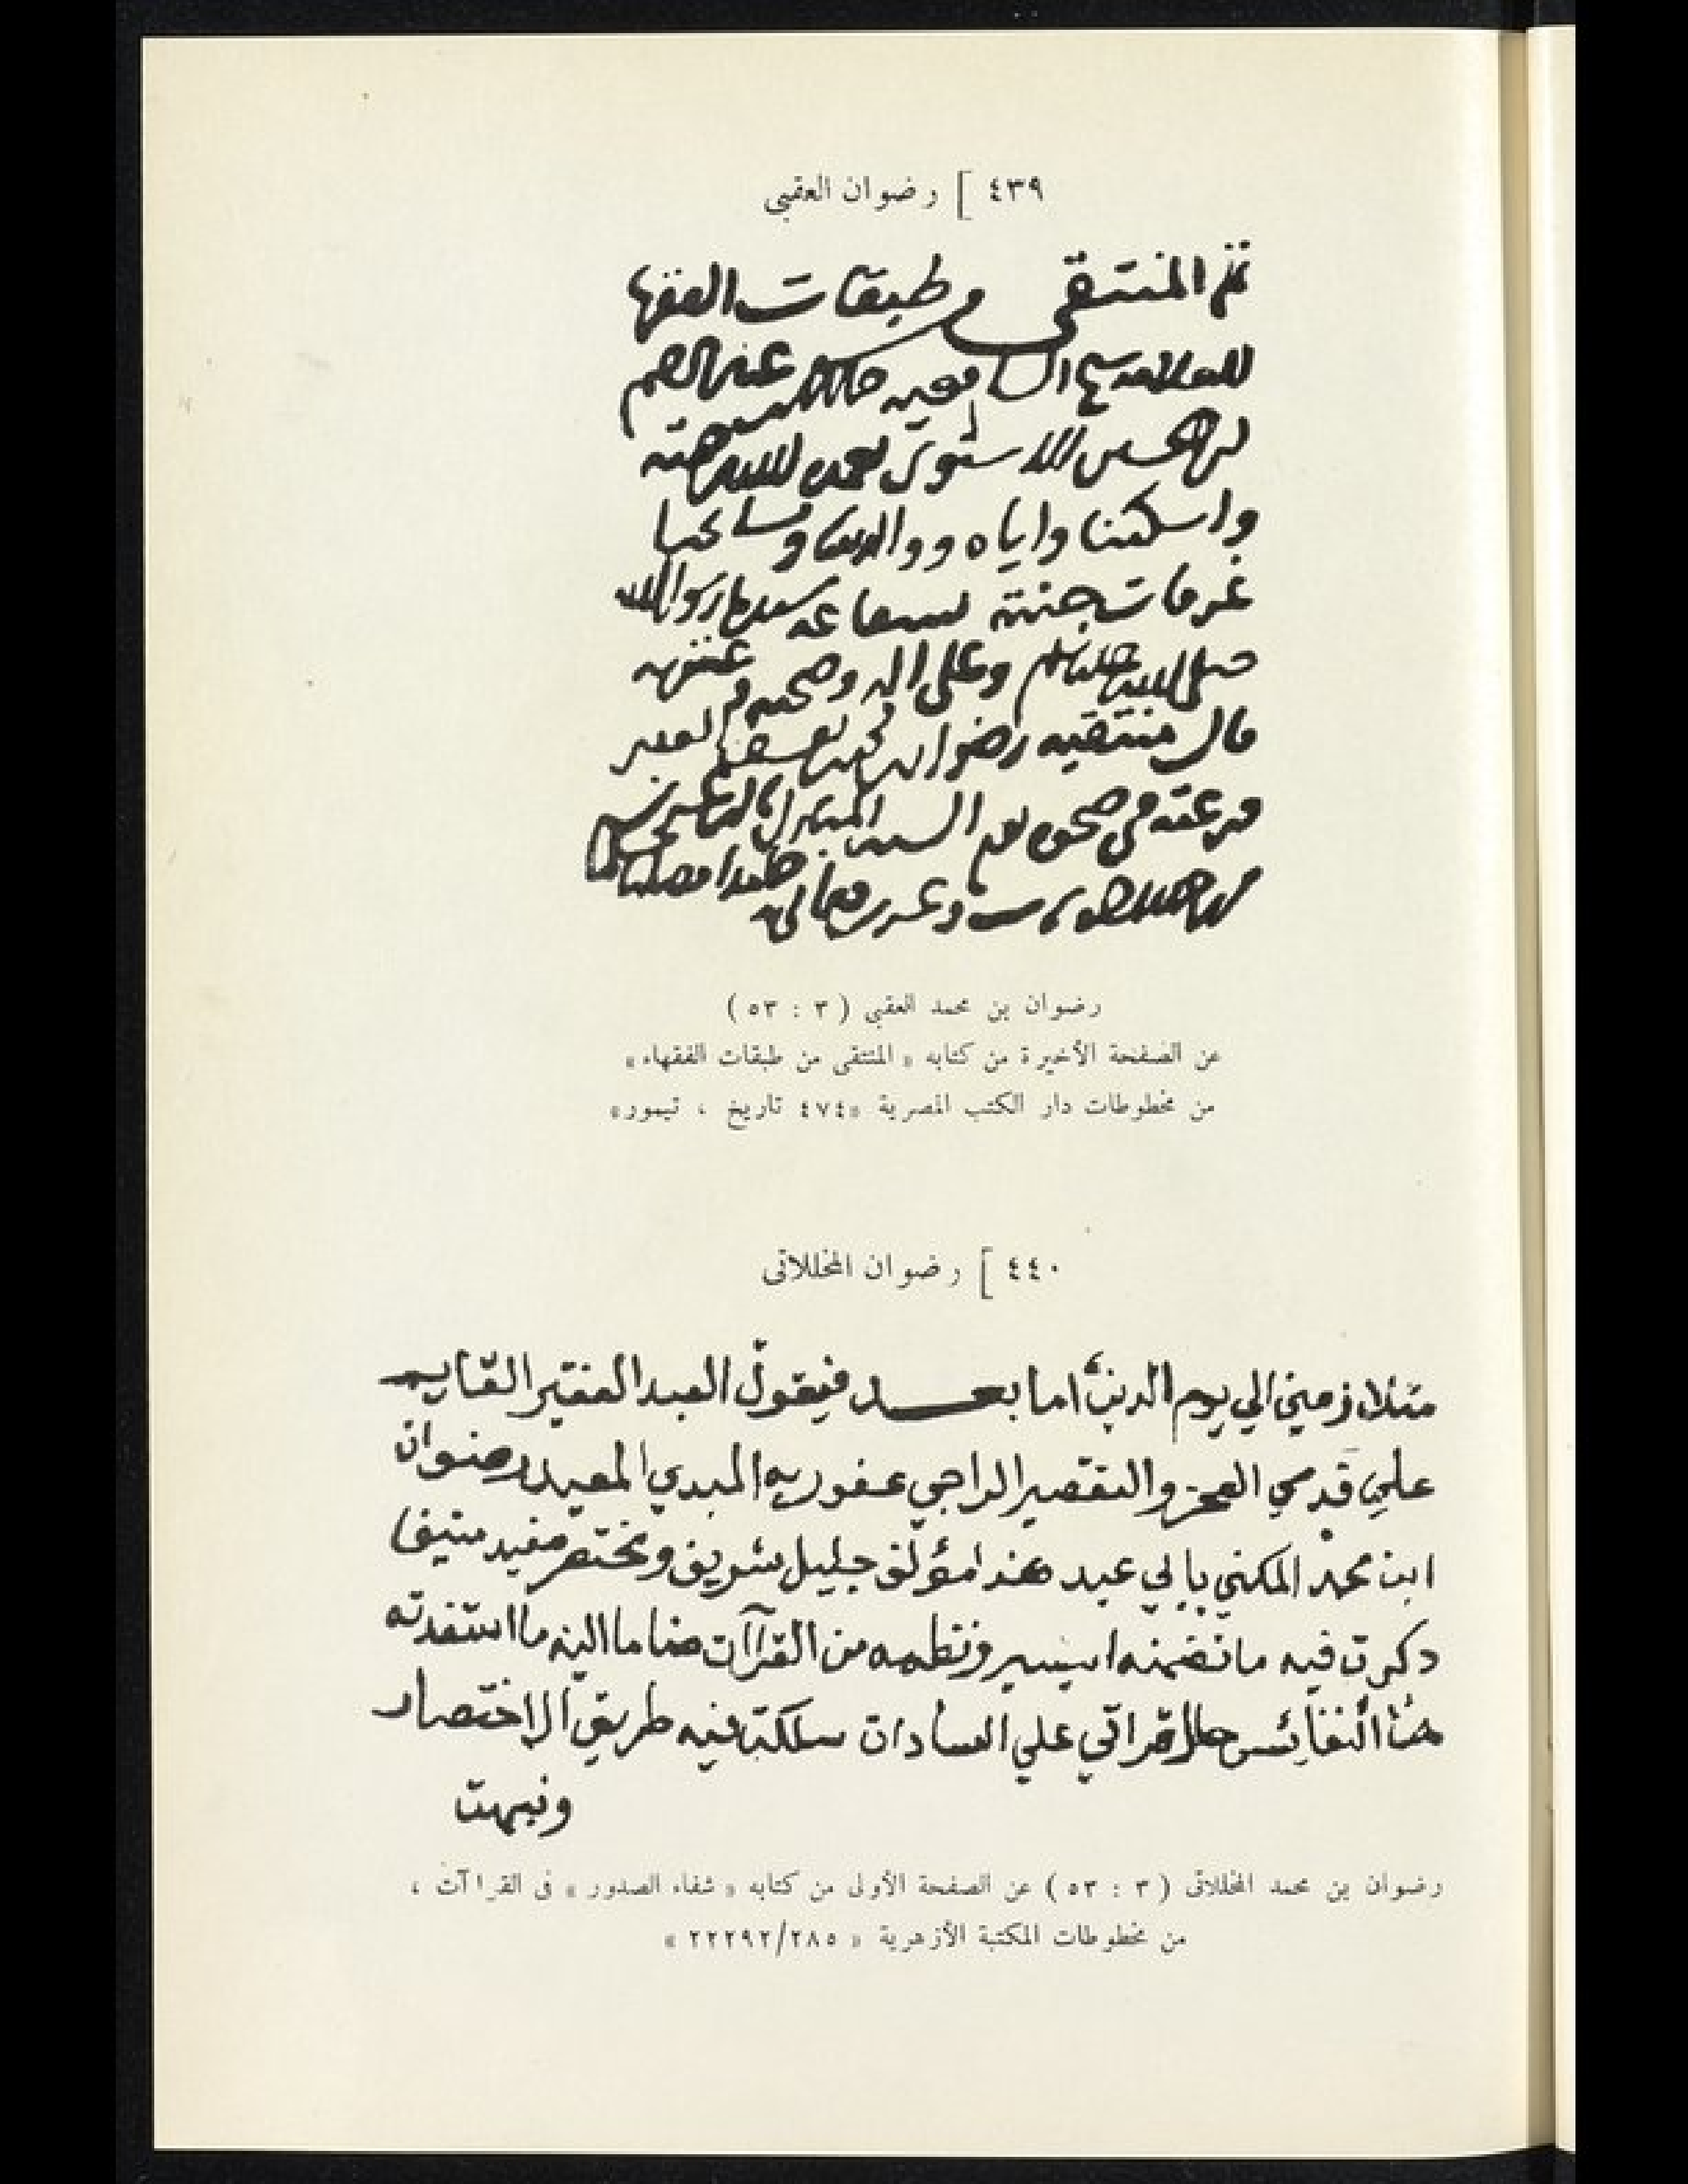 ٤٣٩ [ رضوان العقبي
تم المنتقى من طبقات الفقها
للعلامه الشافعيه عبد الرحيم
الاسنوى تغمده الله برحمته
واسكننا واياه ووالدينا ومشايخنا
غرفات جنته بشفاعة سيدنا رسول الله
صلى الله عليه وسلم وعلى اله وصحبه
قال منتقيه رضوان بن محمد بن يوسف العقبي
فرغته في صحوة يوم السبت
رضوان بن محمد العقبي ( ٣ : ٥٣ )
عن الصفحة الأخيرة من كتابه « المنتقى من طبقات الفقهاء »
من مخطوطات دار الكتب المصرية «٤٧٤ تاريخ ، تيمور»
٤٤٠ [ رضوان المخللاتى
متلازمين الي يوم الدين اما بعد فيقول العبد الفقير القايم
علي قدمي العجز والتقصير الراجي عفو ربه المبدي المعيد رضوان
ابن محمد المكني بابي عيد هذا مؤلف جليل شريف ومختصر مفيد منيف
ذكرت فيه ما تضمنه ونظمه من القراآت ضاما اليه ما استفدته
من النفائس حال قراتي علي السادات سلكت فيه طريق الاختصار
ونبهت
رضوان بن محمد المخللاتى ( ٣ : ٥٣ ) عن الصفحة الأولى من كتابه « شفاء الصدور » فى القراآت ،
من مخطوطات المكتبة الأزهرية « ٢٢٢٩٢/٢٨٥ »